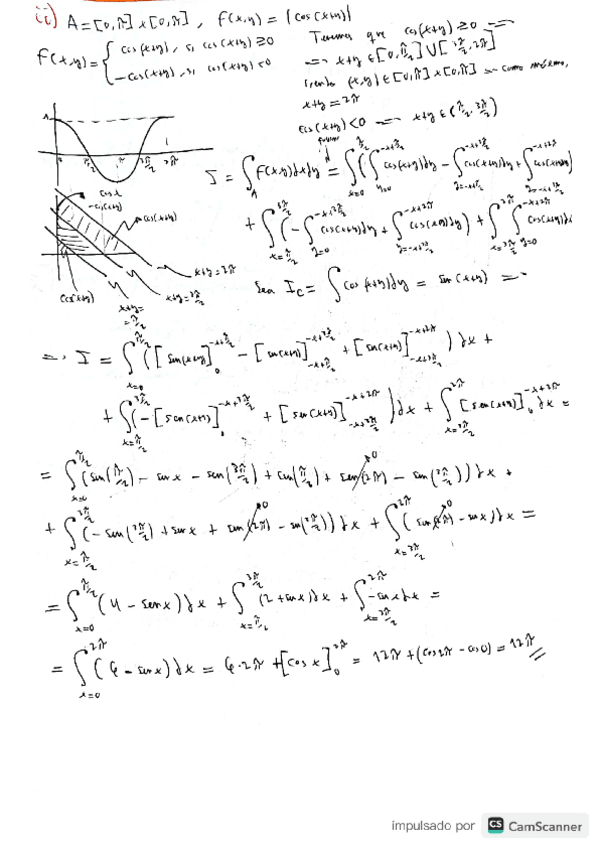 ii) A = [0,π] x [0,π], f(x,y) = |cos(x+y)|
f(x,y) = { cos(x+y), si cos(x+y) ≥ 0
-cos(x+y), si cos(x+y) < 0
Tenemos que cos(x+y) ≥ 0 ⟹
⟹ x+y ∈ [0, π/2] ∪ [3π/2, 2π]
siendo (x,y) ∈ [0,π] x [0,π] como máximo,
x+y = 2π
cos(x+y) < 0 ⟹ x+y ∈ (π/2, 3π/2)
π/2 π 3π/2 2π
cos x
-cos(x+y)
cos(x+y)
x+y = 2π
x+y = 3π/2
x+y = π/2
cos(x+y)
I = ∫_A f(x,y)dxdy = ∫_{x=0}^{π/2} (∫_{y=0}^{-x+π/2} cos(x+y)dy - ∫_{y=-x+π/2}^{-x+3π/2} cos(x+y)dy + ∫_{y=-x+3π/2}^{-x+2π} cos(x+y)dy)
+ ∫_{x=π/2}^{3π/2} (-∫_{y=0}^{-x+3π/2} cos(x+y)dy + ∫_{y=-x+3π/2}^{-x+2π} cos(x+y)dy) + ∫_{x=3π/2}^{2π} ∫_{y=0}^{-x+2π} cos(x+y)dy
Sea I_c = ∫ cos(x+y)dy = sen(x+y) ⟹
⟹ I = ∫_{x=0}^{π/2} ([sen(x+y)]_0^{-x+π/2} - [sen(x+y)]_{-x+π/2}^{-x+3π/2} + [sen(x+y)]_{-x+3π/2}^{-x+2π}) dx +
+ ∫_{x=π/2}^{3π/2} (-[sen(x+y)]_0^{-x+3π/2} + [sen(x+y)]_{-x+3π/2}^{-x+2π}) dx + ∫_{x=3π/2}^{2π} [sen(x+y)]_0^{-x+2π} dx =
= ∫_{x=0}^{π/2} (sen(π/2) - sen x - sen(3π/2) + sen(π/2) + sen(2π) - sen(3π/2)) dx +
+ ∫_{x=π/2}^{3π/2} (-sen(3π/2) + sen x + sen(2π) - sen(3π/2)) dx + ∫_{x=3π/2}^{2π} (sen(2π) - sen x) dx =
= ∫_{x=0}^{π/2} (4 - sen x) dx + ∫_{x=π/2}^{3π/2} (2 + sen x) dx + ∫_{x=3π/2}^{2π} -sen x dx =
= ∫_{x=0}^{2π} (6 - sen x) dx = 6·2π + [cos x]_0^{2π} = 12π + (cos 2π - cos 0) = 12π
impulsado por CS CamScanner